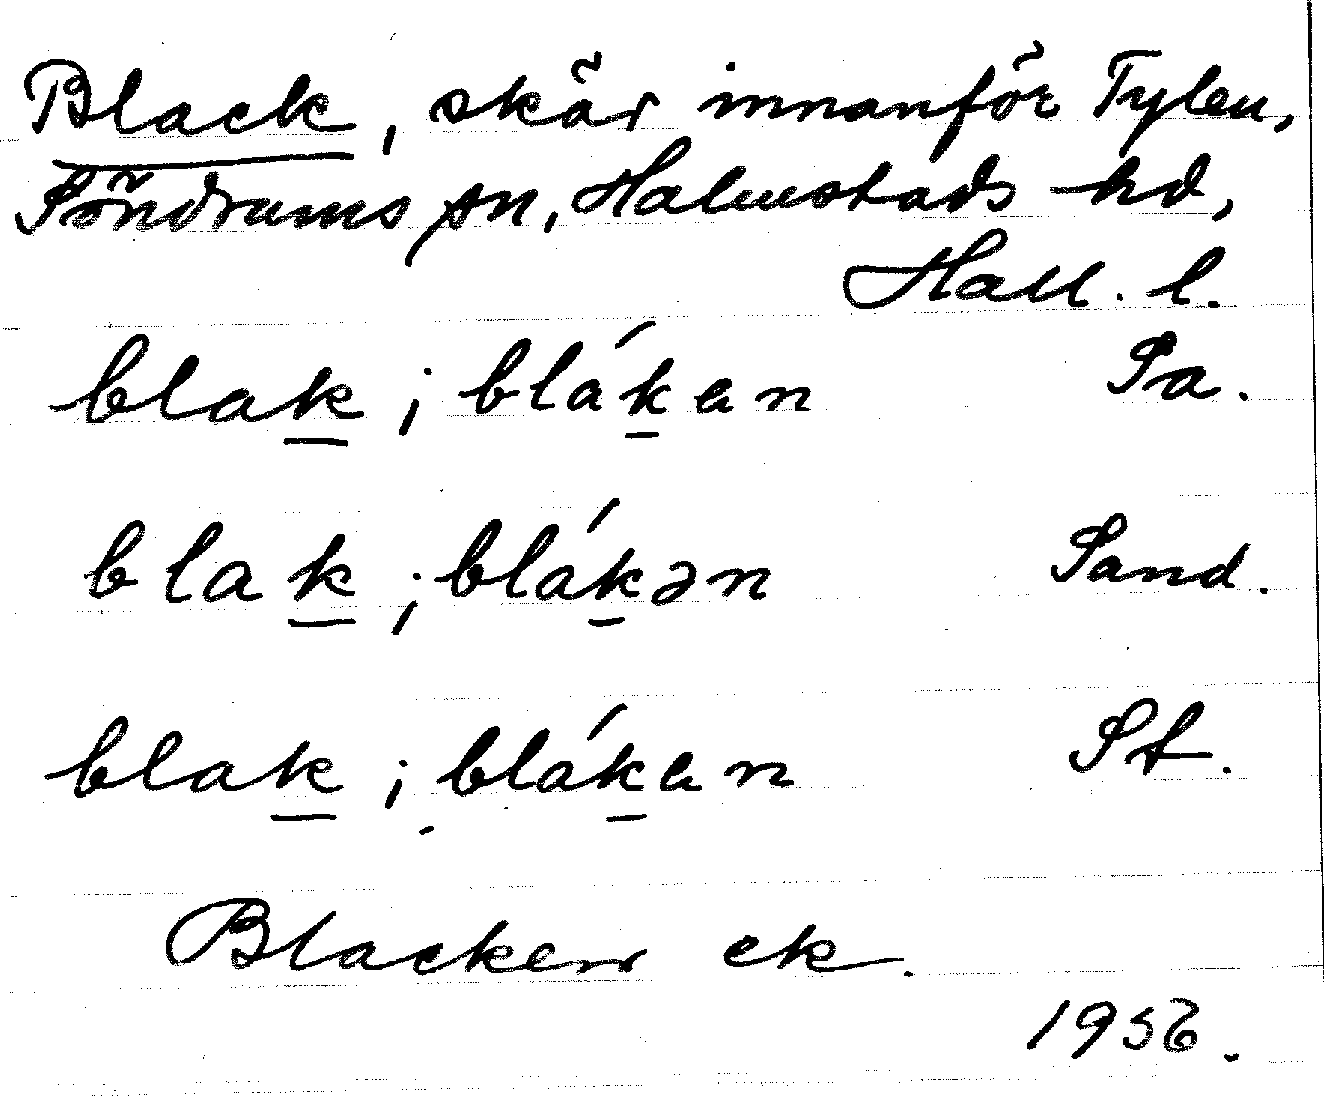 Black, skär innanför Tylen,
Söndrums sn, Halmstads hd,
Hall. l.
blak; blák en Sa.
blak; blákən Sand.
blak; blák en St.
Blacken ek.
1956.